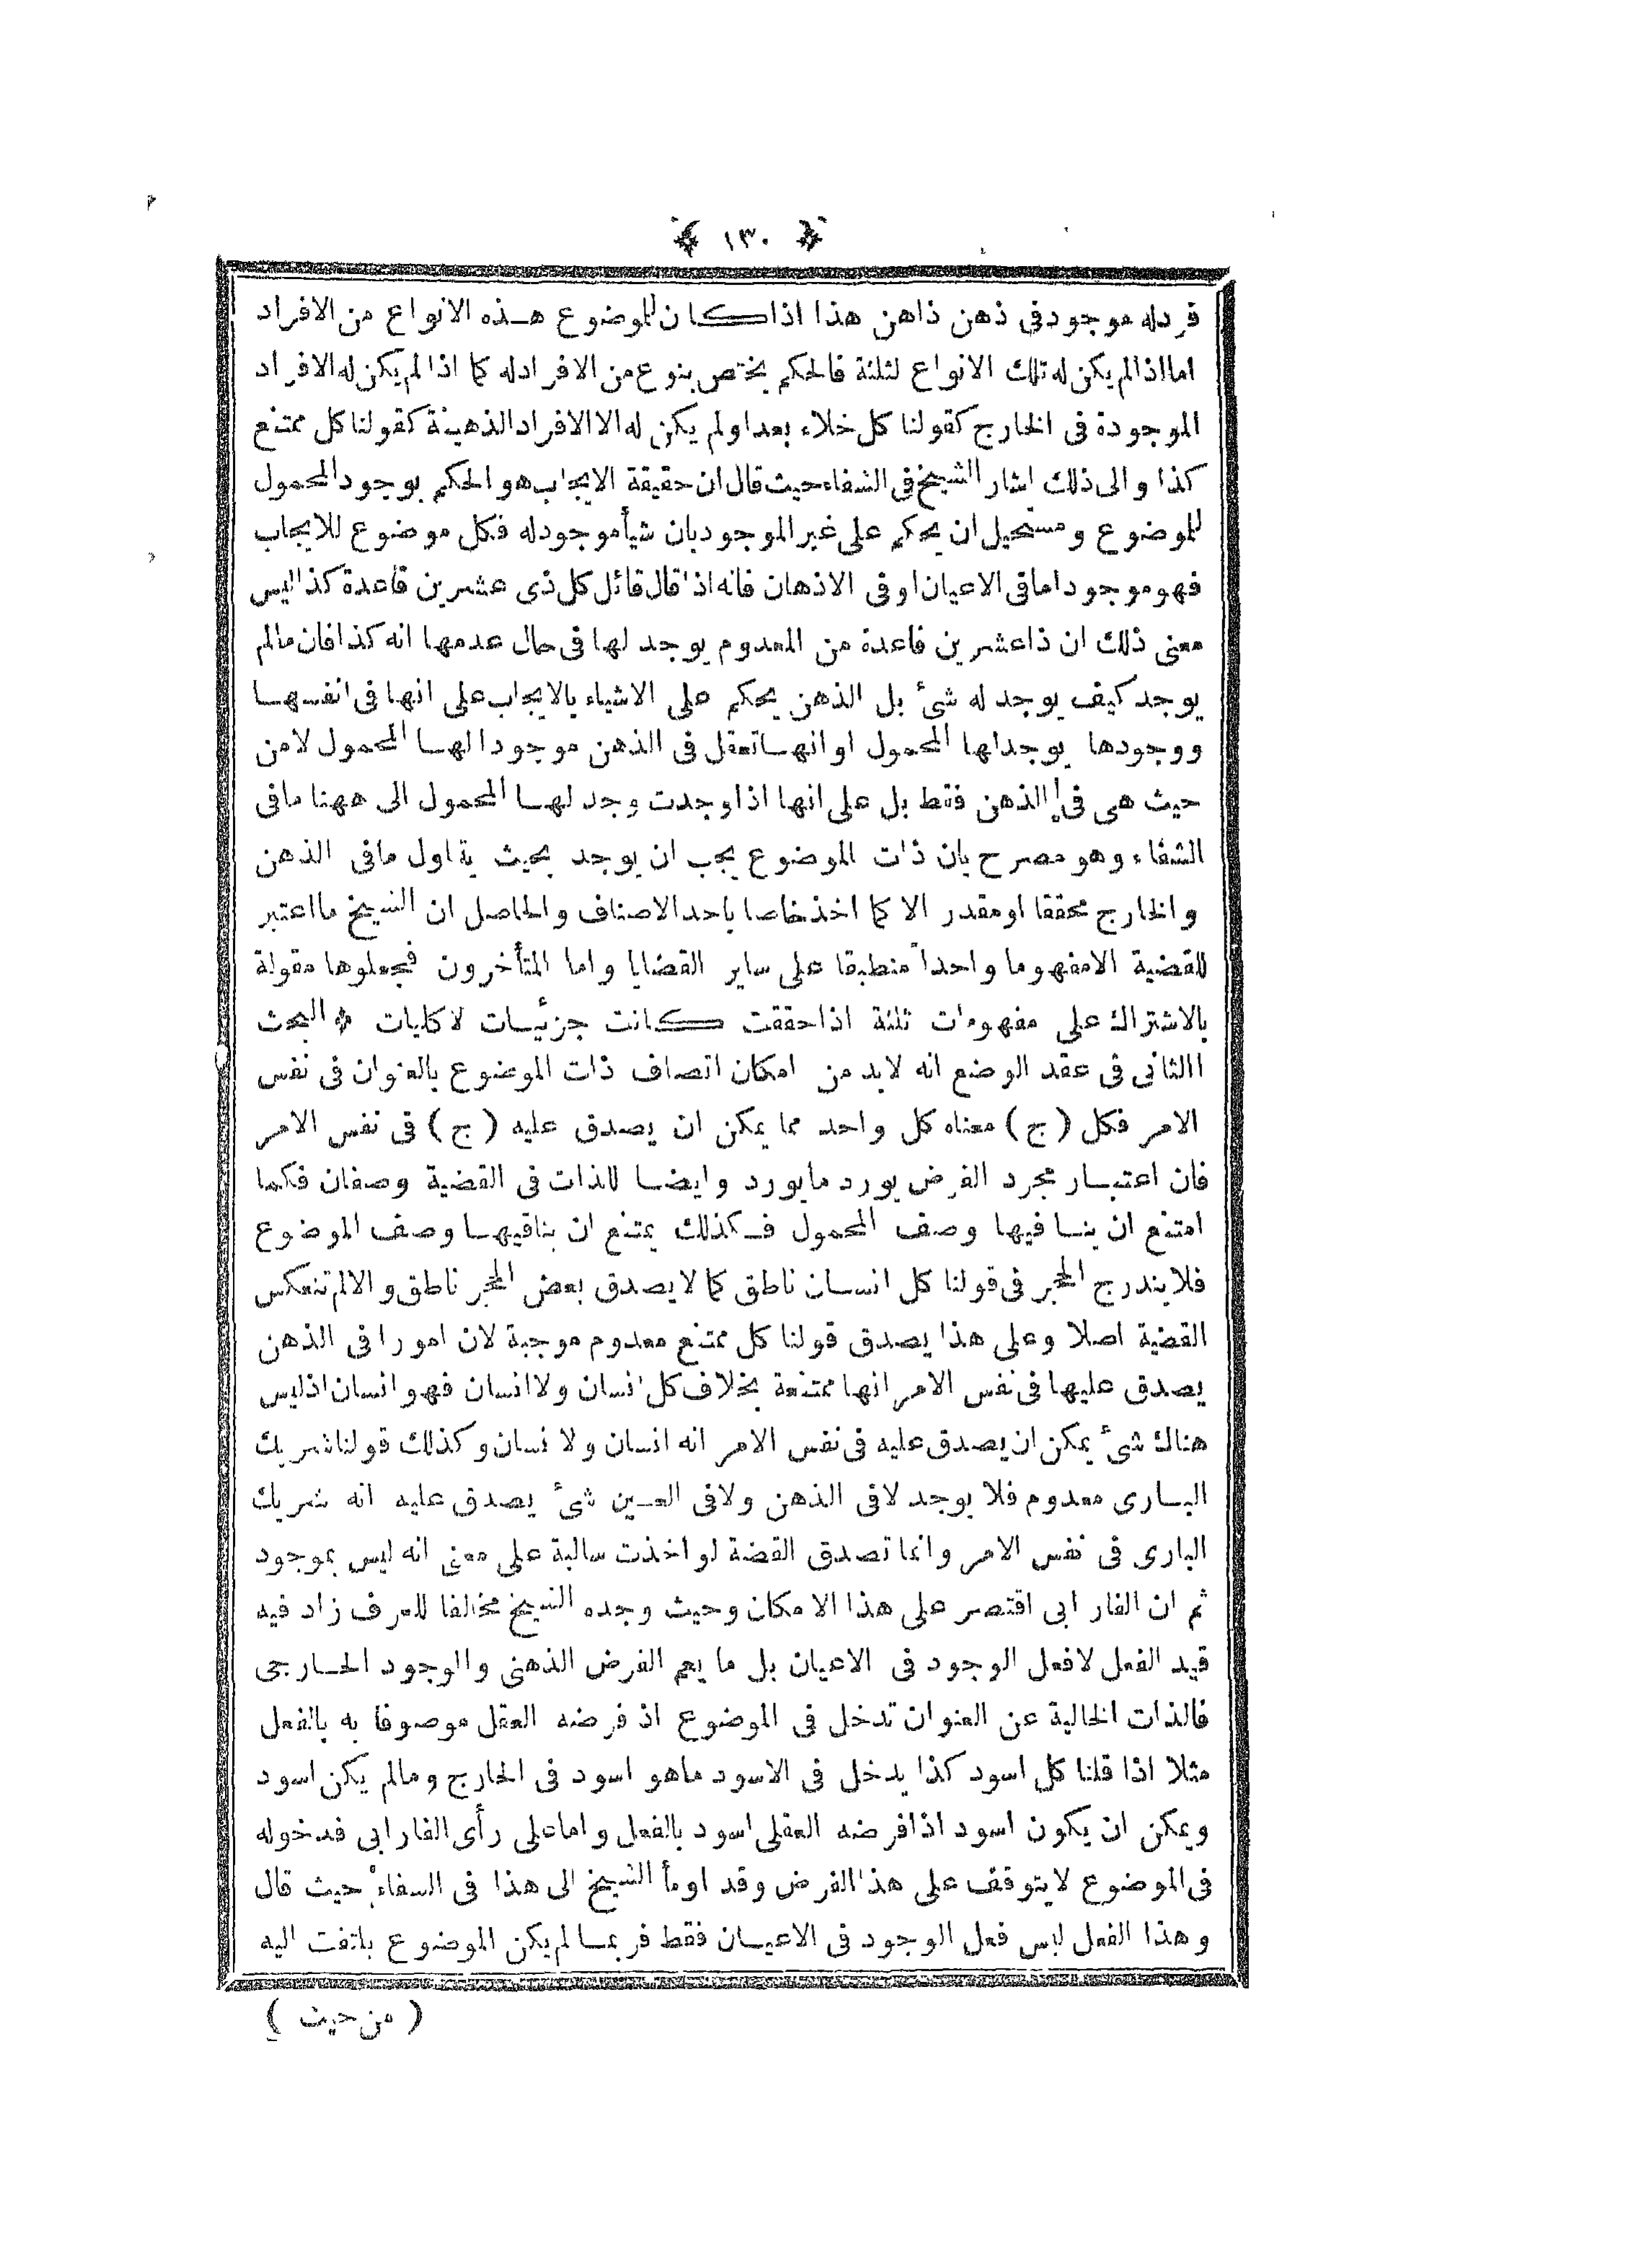 ﴿ ١٣٠ ﴾
فرد له موجود فى ذهن ذاهن هذا اذا كان للموضوع هذه الانواع من الافراد
اما اذا لم يكن له تلك الانواع لثلثة فالحكم يختص بنوع من الافراد له كما اذا لم يكن له الافراد
الموجودة فى الخارج كقولنا كل خلاء بعد او لم يكن له الا الافراد الذهينة كقولنا كل ممتنع
كذا والى ذلك اشار الشيخ فى الشفاء حيث قال ان حقيقة الايجاب هو الحكم بوجود المحمول
للموضوع ومستحيل ان يحكم على غير الموجود بان شيأ موجود له فكل موضوع للايجاب
فهو موجود اما فى الاعيان او فى الاذهان فانه اذا قال قائل كل ذى عشرين قاعدة كذا ليس
معنى ذلك ان ذا عشرين قاعدة من المعدوم يوجد لها فى حال عدمها انه كذا فان مالم
يوجد كيف يوجد له شئ بل الذهن يحكم على الاشياء بالايجاب على انها فى انفسها
ووجودها يوجد لها المحمول او انها تعقل فى الذهن موجودا لها المحمول لا من
حيث هى فى الذهن فقط بل على انها اذا وجدت وجد لها المحمول الى ههنا ما فى
الشفاء وهو مصرح بان ذات الموضوع يجب ان يوجد بحيث يتاول ما فى الذهن
والخارج محققا او مقدر الا كما اخذ خاصا باحد الاصناف والحاصل ان الشيخ ما اعتبر
للقضية الا مفهوما واحدا منطبقا على ساير القضايا واما المتأخرون فجعلوها مقولة
بالاشتراك على مفهومات ثلثة اذا حققت كانت جزئيات لا كليات * البحث
االثانى فى عقد الوضع انه لابد من امكان اتصاف ذات الموضوع بالعنوان فى نفس
الامر فكل (ج) معناه كل واحد مما يمكن ان يصدق عليه (ج) فى نفس الامر
فان اعتبار مجرد الفرض يورد ما يورد وايضا للذات فى القضية وصفان فكما
امتنع ان ينافيها وصف المحمول فكذلك يمتنع ان ينافيها وصف الموضوع
فلا يندرج الحجر فى قولنا كل انسان ناطق كما لا يصدق بعض الحجر ناطق والا لم تنعكس
القضية اصلا وعلى هذا يصدق قولنا كل ممتنع معدوم موجبة لان امورا فى الذهن
يصدق عليها فى نفس الامر انها ممتنعة بخلاف كل انسان ولا انسان فهو انسان اذ ليس
هناك شئ يمكن ان يصدق عليه فى نفس الامر انه انسان ولا نسان وكذلك قولنا شريك
البارى معدوم فلا يوجد لا فى الذهن ولا فى العين شئ يصدق عليه انه شريك
البارى فى نفس الامر وانما تصدق القضة لو اخذت سالبة على معنى انه ليس بموجود
ثم ان الفارابى اقتصر على هذا الامكان وحيث وجده الشيخ مخالفا للعرف زاد فيه
قيد الفعل لا فعل الوجود فى الاعيان بل ما يعم الفرض الذهنى والوجود الخارجى
فالذات الخالية عن العنوان تدخل فى الموضوع اذ فرضه العقل موصوفا به بالفعل
مثلا اذا قلنا كل اسود كذا يدخل فى الاسود ما هو اسود فى الخارج ومالم يكن اسود
ويمكن ان يكون اسود اذا فرضه العقل اسود بالفعل واما على رأى الفارابى فدخوله
فى الموضوع لا يتوقف على هذا الفرض وقد اومأ الشيخ الى هذا فى الشفاء حيث قال
وهذا الفعل ليس فعل الوجود فى الاعيان فقط فربما لم يكن الموضوع ياتفت اليه
( من حيث )